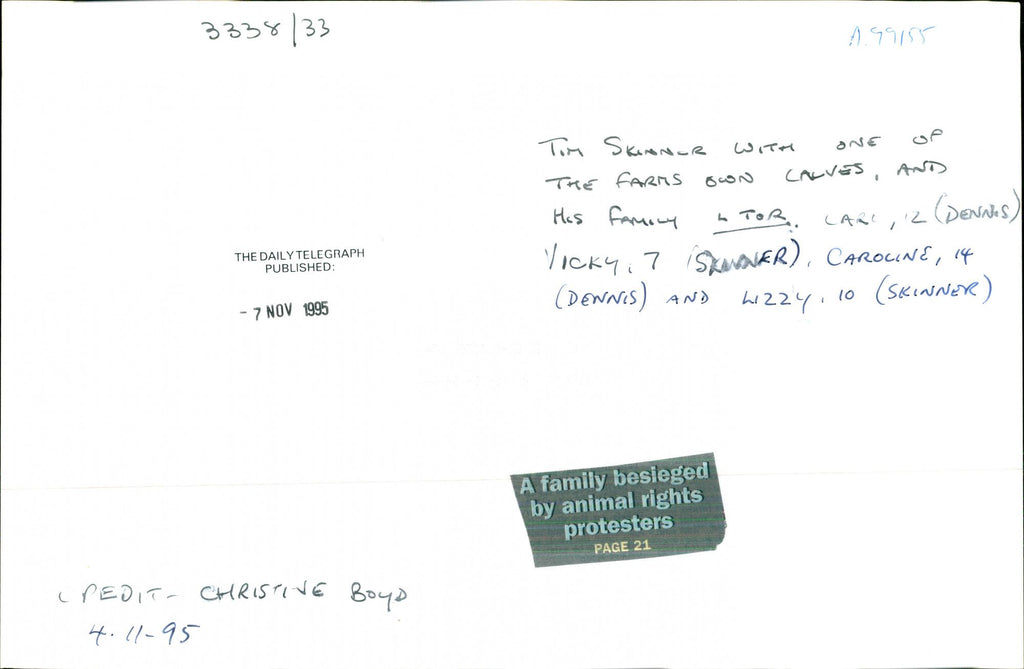 3338/33
A.99/55
TIM SKINNER WITH ONE OF
THE FARMS OWN CALVES, AND
HIS FAMILY L TO R. CARL, 12 (DENNIS)
VICKY, 7 (SKINNER), CAROLINE, 14
(DENNIS) AND LIZZY, 10 (SKINNER)
THE DAILY TELEGRAPH
PUBLISHED:
- 7 NOV 1995
A family besieged
by animal rights
protesters
PAGE 21
CREDIT - CHRISTINE BOYD
4-11-95